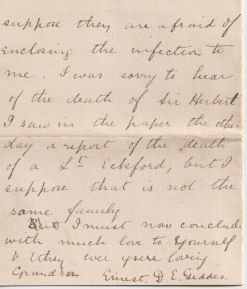 suppose they are afraid of
enclosing the infection to
me. I was sorry to hear
of the death of Sir Herbert
I saw in the paper the other
day a report of the death
of a Lt Ecksford, but I
suppose that is not the
same family
But I must now conclude
with much love to Yourself
& Ethey ever your loving
Grandson Ernest. D. E. Geddes.